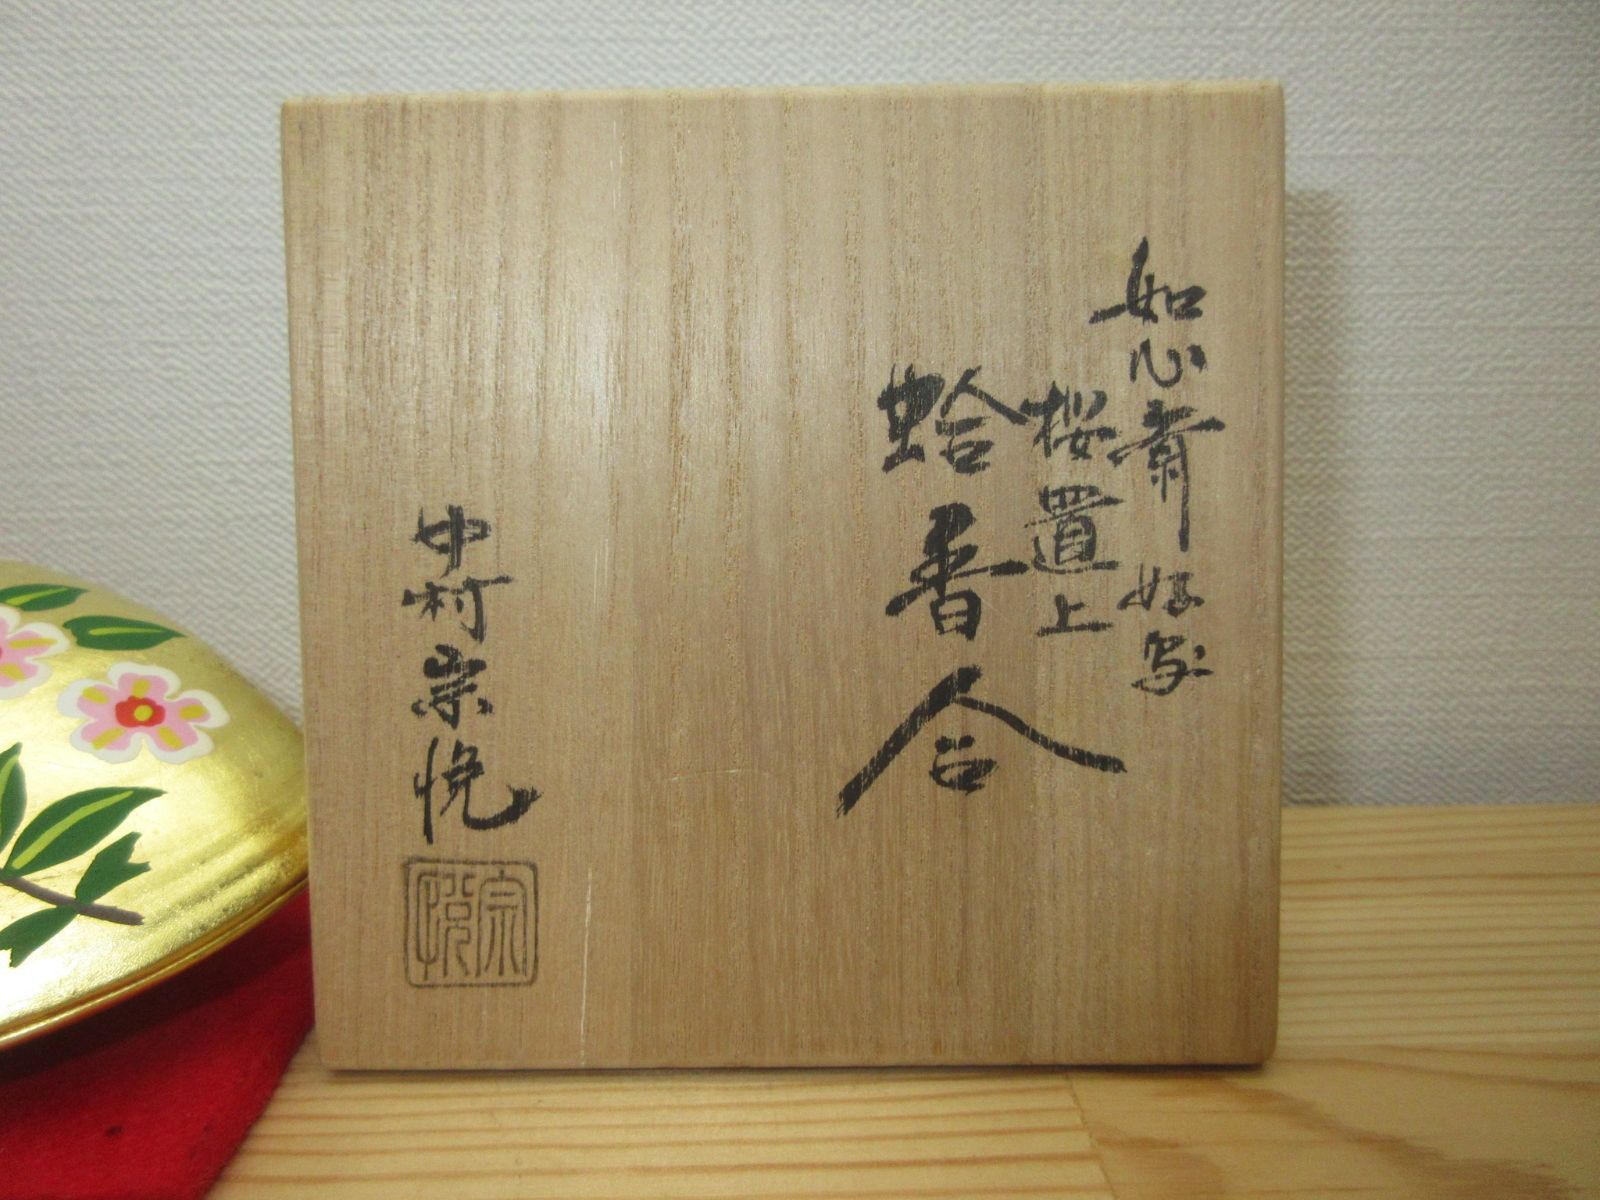 如心斎好写
桜置上
蛤香合
中村宗悦
宗悦